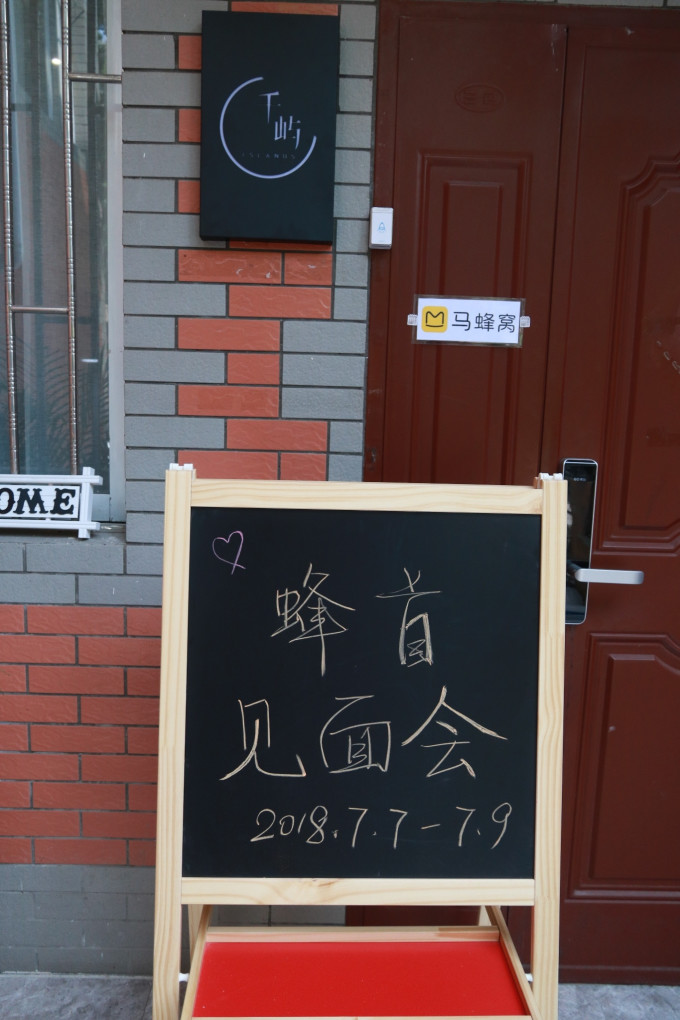 千屿
ISLANDS
马蜂窝
OME
蜂首
见面会
2018.7.7-7.9